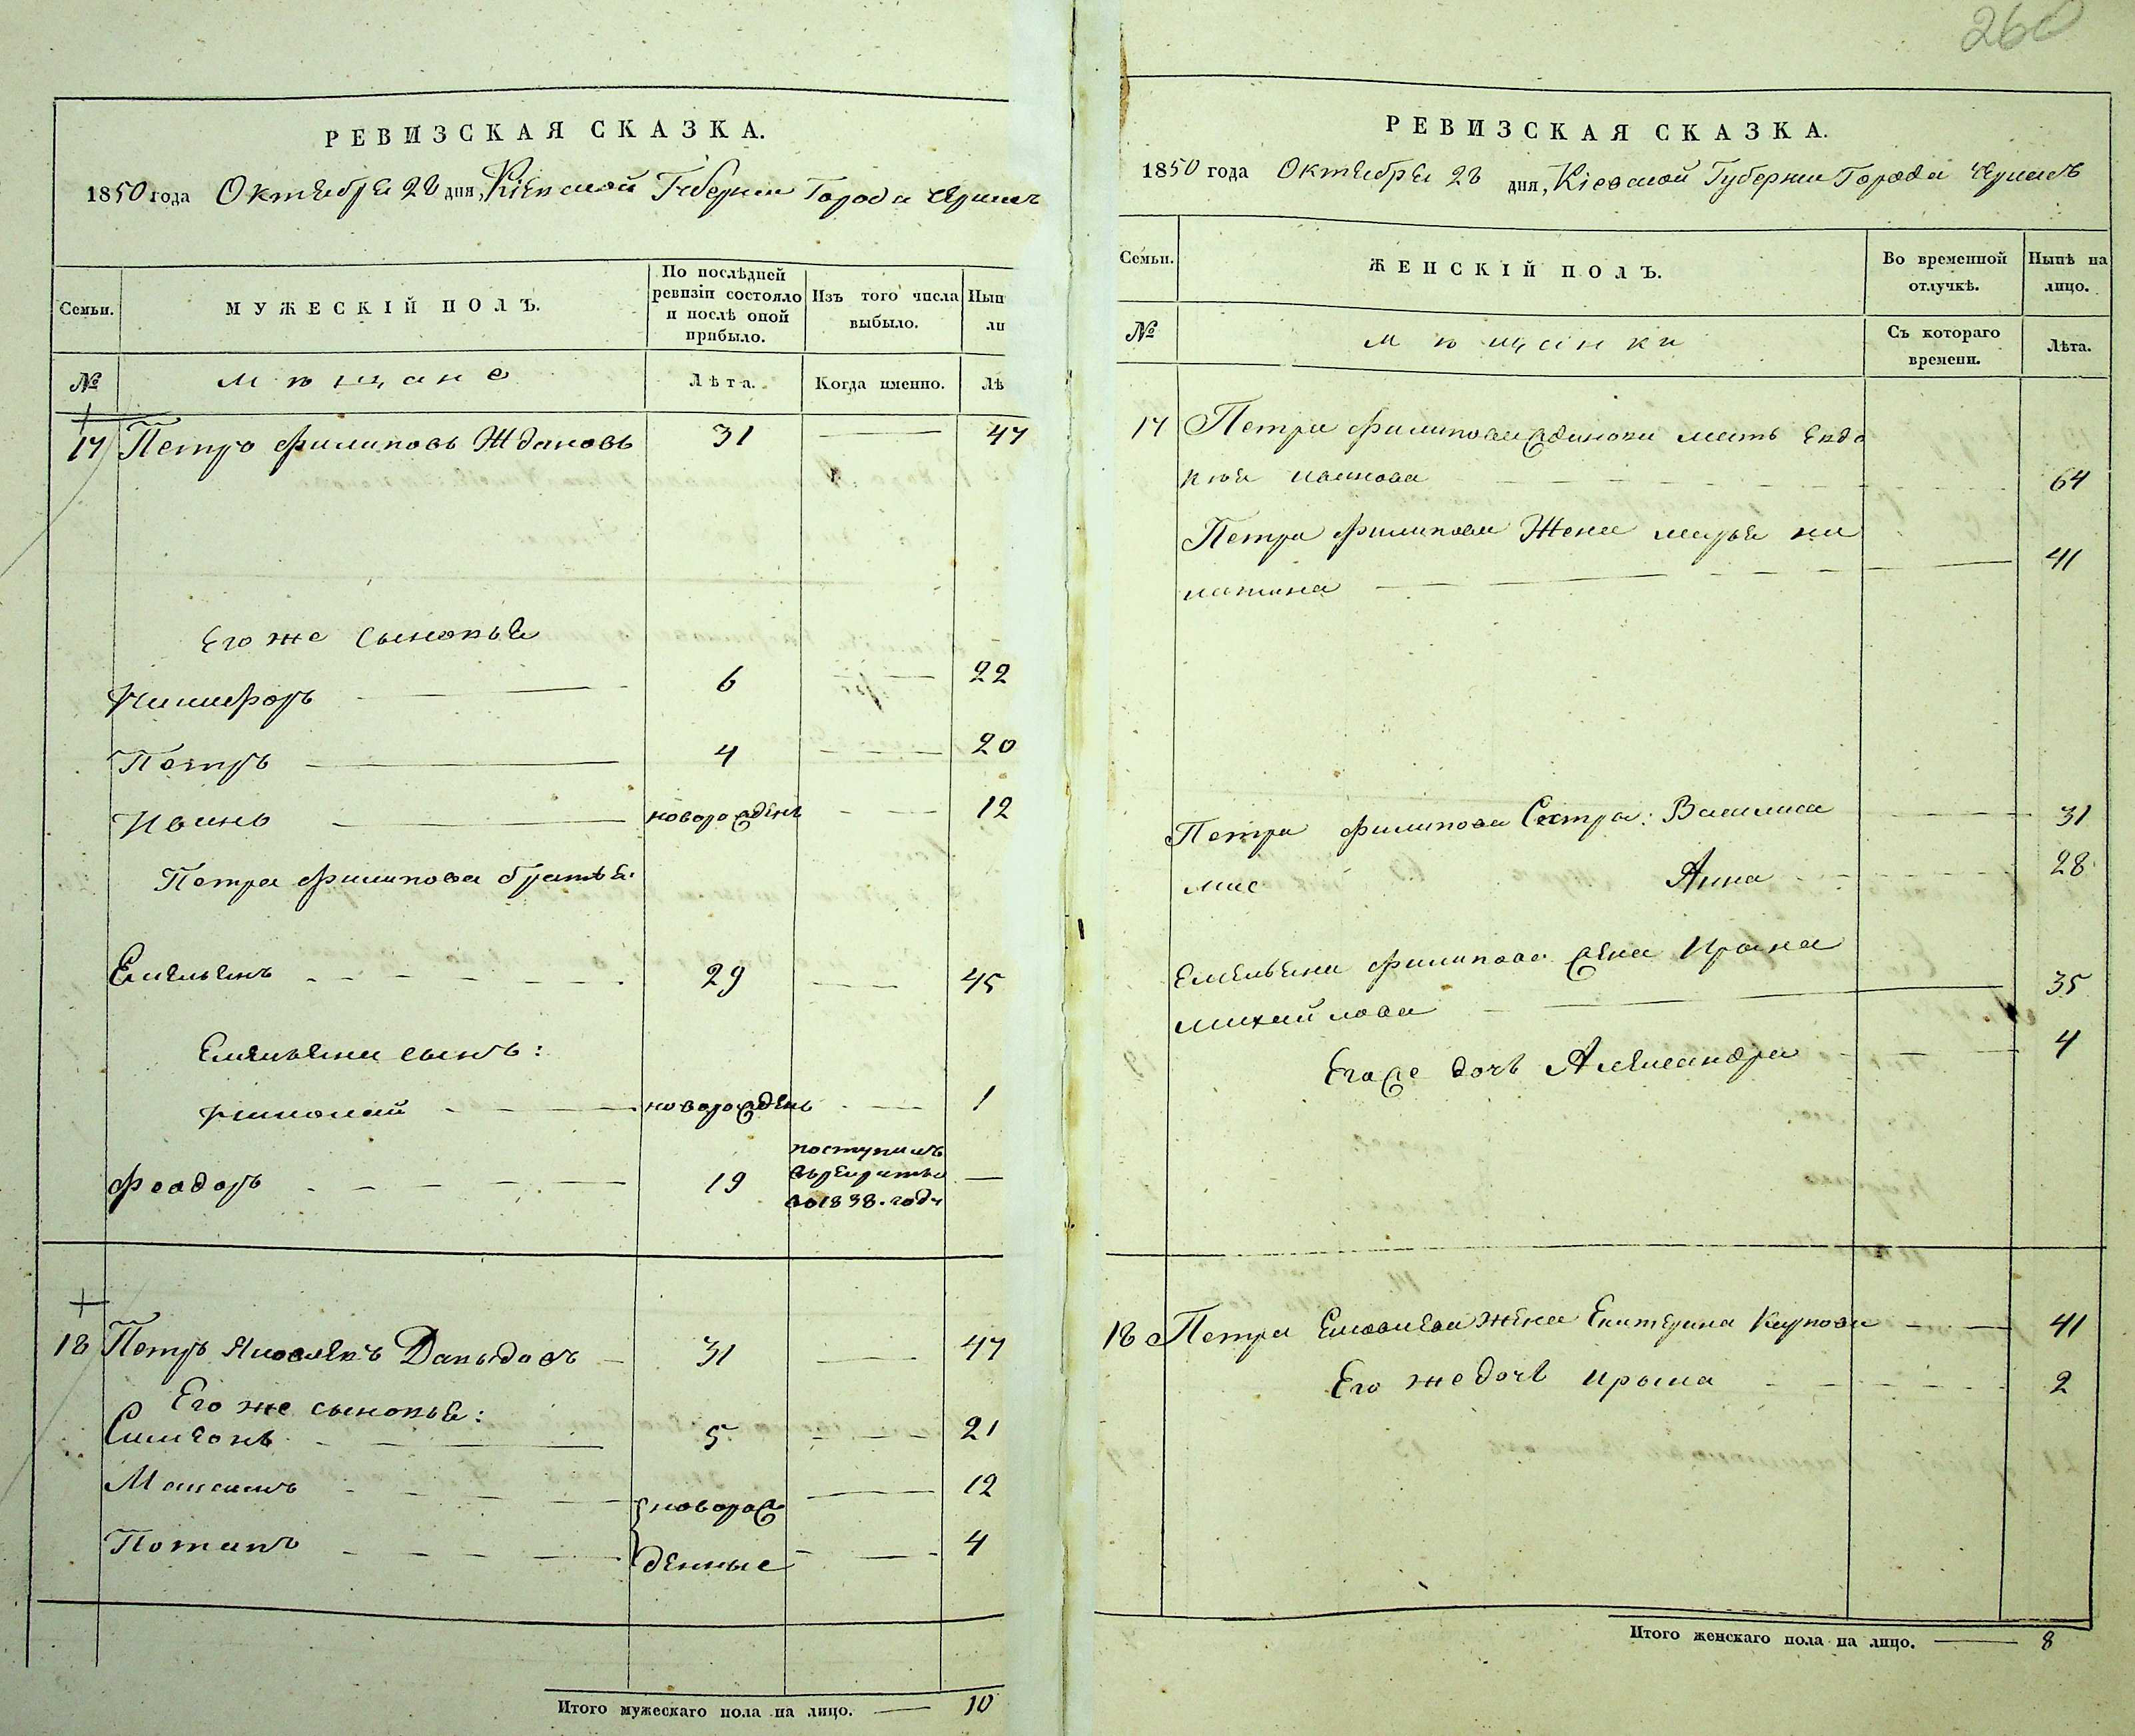 260
РЕВИЗСКАЯ СКАЗКА.
1850 года Октября 28 дня, Кіевской Губерніи Города
Семьи.
МУЖЕСКІЙ ПОЛЪ.
По послѣдней ревизіи состояло и послѣ оной прибыло.
Изъ того числа выбыло.
Нын
ли
№
мѣщане
Лѣта.
Когда именно.
Лѣ
17 Петръ Филиповъ Ждановъ 31 47
Его же сыновья
Никифоръ 6 22
Петръ 4 20
Иванъ новорожденъ 12
Петра Филипова братья:
Емельянъ 29 45
Емельяна сынъ:
Николай новорожденъ 1
Феодоръ 19 поступилъ
въ рекруты
во 1838. году
18 Петръ Яковлевъ Давыдовъ 31 47
Его же сыновья:
Симеонъ 5 21
Максимъ новорож 12
Потапъ денные 4
Итого мужескаго пола на лицо. 10
РЕВИЗСКАЯ СКАЗКА.
1850 года Октября 28 дня, Кіевской Губерніи Города
Семьи.
ЖЕНСКІЙ ПОЛЪ.
Во временной отлучкѣ.
Нынѣ на лицо.
№
мѣщанки
Съ котораго времени.
Лѣта.
17 Петра Филипова мать Евдо
кия Иванова 64
Петра Филипова Жена марья
41
Петра Филипова Сестра: Василиса 31
Анна 28
Емельяна Филипова жена Ирина
михайлова 35
Егоже дочь Александра 4
18 Петра Яковлева жена Екатерина Карпова 41
Его же дочь Ирина 2
Итого женскаго пола на лицо. 8